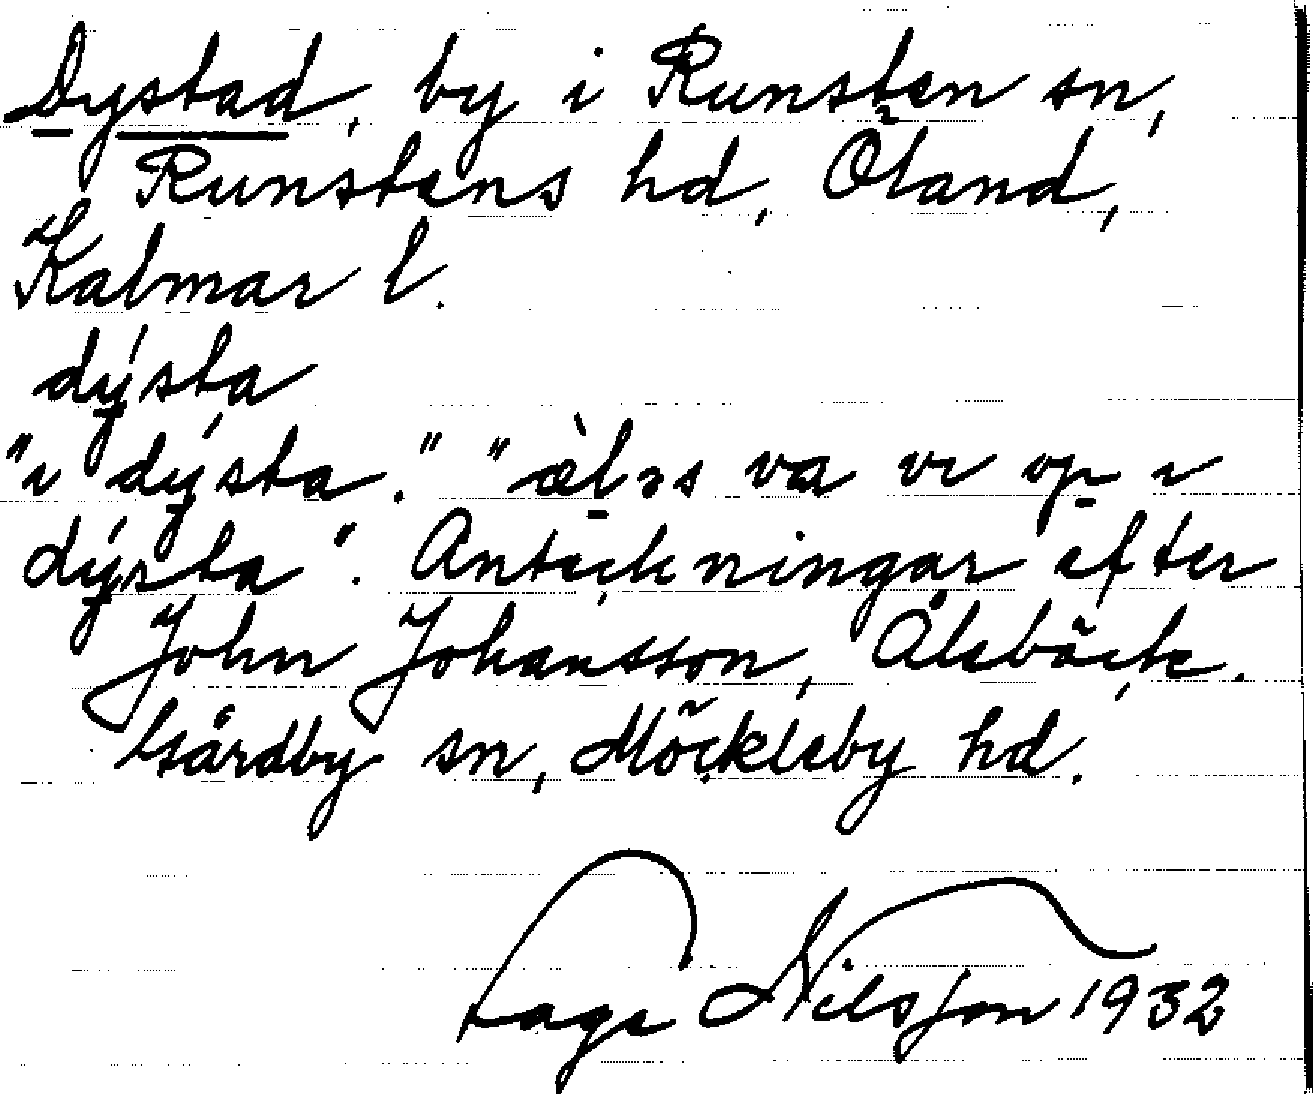 Dystad, by i Runsten sn,
Runstens hd, Öland,
Kalmar l.
dýsta
"i dýsta." "æ̀lɜs va vi op i
dýsta". Anteckningar efter
John Johansson, Ålebäck.
Gårdby sn, Möckleby hd.
Tage Nilsson 1932